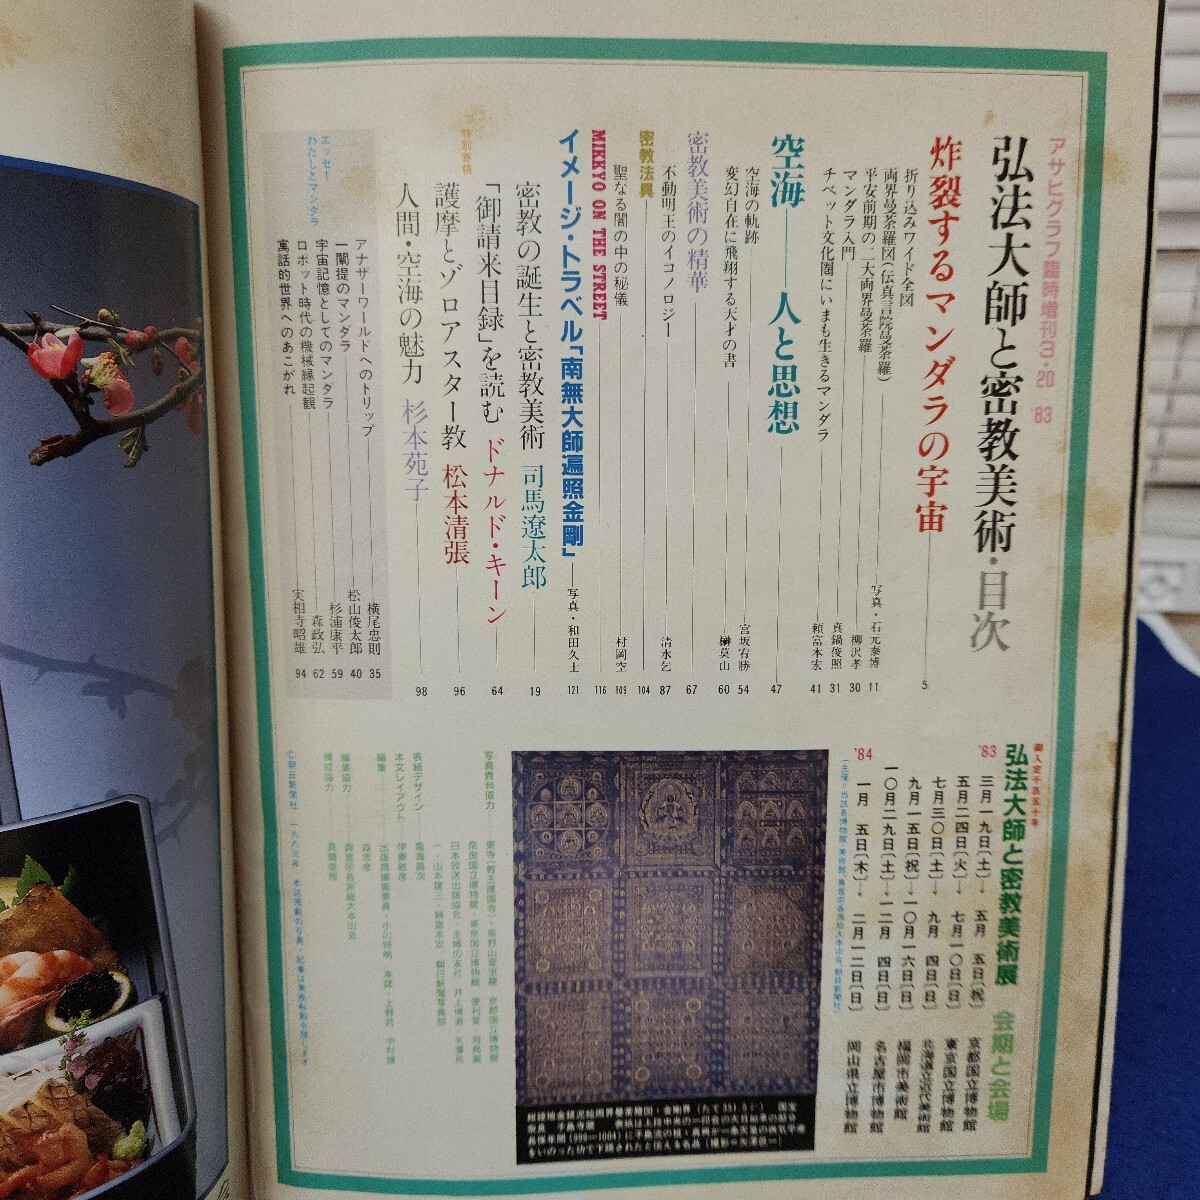 アサヒグラフ臨時増刊3・20 '83
弘法大師と密教美術・目次
炸裂するマンダラの宇宙 5
折り込みワイド全図
両界曼荼羅図(伝真言院曼荼羅) 写真・石元泰博 11
平安前期の二大両界曼荼羅 柳沢孝 30
マンダラ入門 真鍋俊照 31
チベット文化圏にいまも生きるマンダラ 頼富本宏 41
空海――人と思想 47
空海の軌跡 宮坂宥勝 54
変幻自在に飛翔する天才の書 榊莫山 60
密教美術の精華 67
不動明王のイコノロジー 清水乞 87
密教法具 104
聖なる闇の中の秘儀 村岡空 109
MIKKYO ON THE STREET 116
イメージ・トラベル「南無大師遍照金剛」 写真・和田久士 121
密教の誕生と密教美術 司馬遼太郎 19
「御請来目録」を読む ドナルド・キーン 64
特別寄稿
護摩とゾロアスター教 松本清張 96
人間・空海の魅力 杉本苑子 98
エッセー
わたしとマンダラ
アナザーワールドへのトリップ 横尾忠則 35
一闡提のマンダラ 松山俊太郎 40
宇宙記憶としてのマンダラ 杉浦康平 59
ロボット時代の機械縁起観 森政弘 62
寓話的世界へのあこがれ 実相寺昭雄 94
御入定千百五十年
弘法大師と密教美術展 会期と会場
'83 三月一九日(土)→五月五日(祝) 京都国立博物館
五月二四日(火)→七月一〇日(日) 東京国立博物館
七月三〇日(土)→九月四日(日) 北海道立近代美術館
九月一五日(祝)→一〇月一六日(日) 福岡市美術館
一〇月二九日(土)→一二月四日(日) 名古屋市博物館
'84 一月五日(木)→二月一二日(日) 岡山県立博物館
(主催=当該各博物館、美術館、真言宗各派総大本山会、朝日新聞社)
写真資料協力
東寺(教王護国寺)・高野山霊宝館 京都国立博物館
奈良国立博物館・東京国立博物館 便利堂・飛鳥園
表紙デザイン
本文レイアウト 亀海昌次
伊東敏彦
編集
編集協力 真言宗各派総大本山会
構成協力 真鍋俊照
©朝日新聞社 一九八三年 本誌掲載の写真・記事は無断転載を禁じます